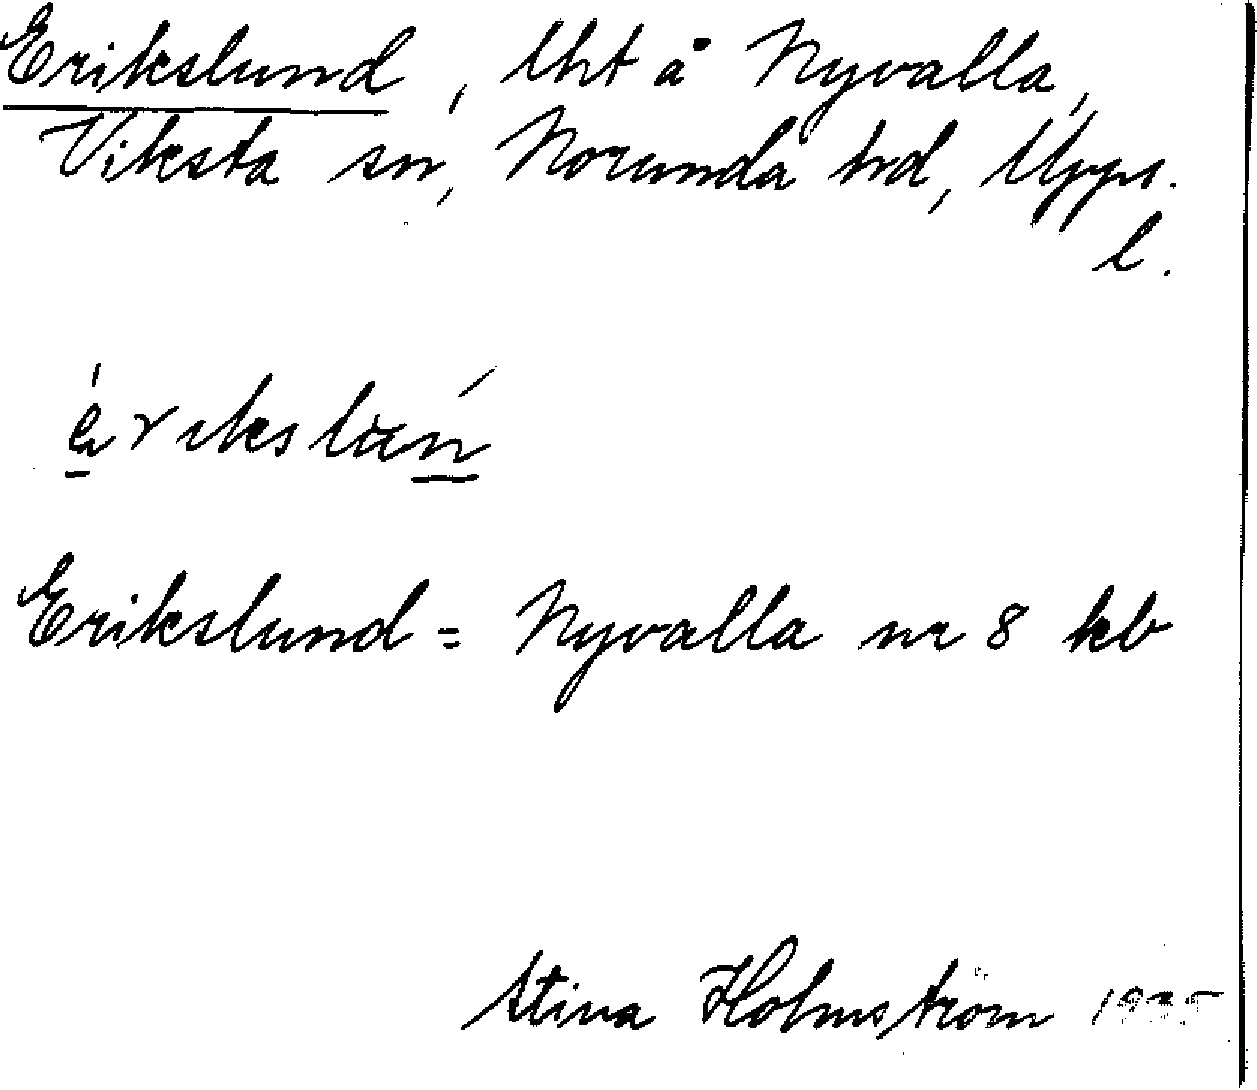 Erikslund, lht å Nyvalla,
Viksta sn, Norunda hd, Upps.
l.
Erikslund = Nyvalla nr 8 kb
Stina Holmström 1935